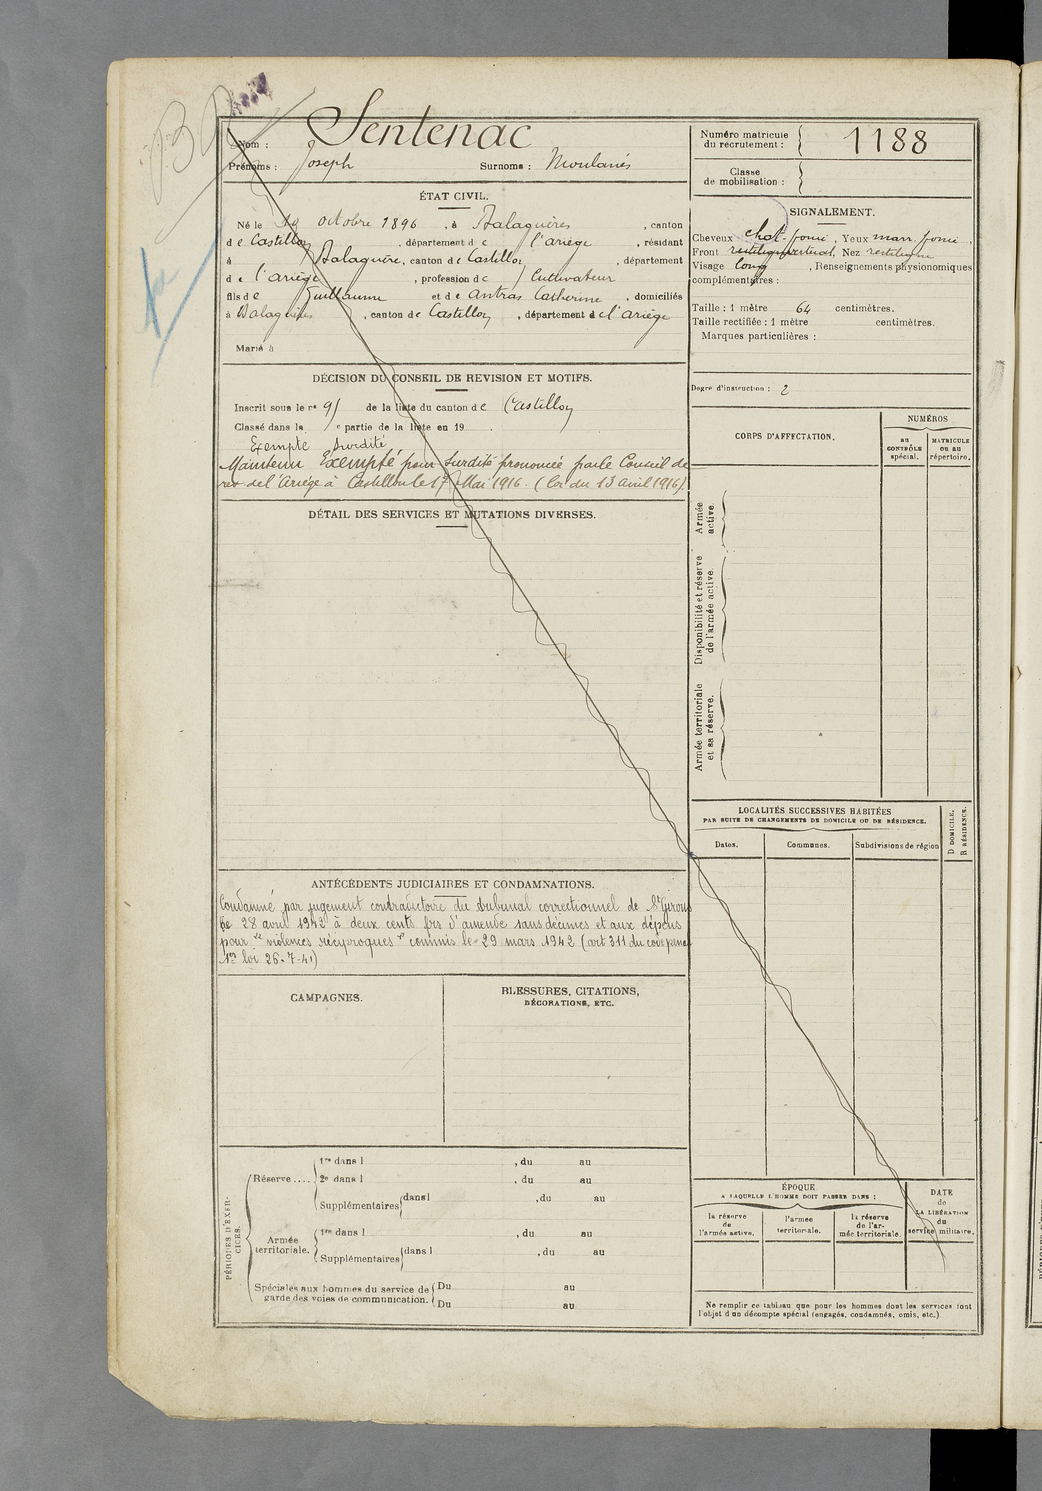 Sentenac
Nom :
Prénoms : Joseph Surnoms : Moulanés
Numéro matricule
du recrutement : 1188
Classe
de mobilisation :
ÉTAT CIVIL.
Né le 19 octobre 1896 , à Balaguères , canton
de Castillon , département de l'ariège , résidant
à Balaguère, canton de Castillon , département
de l'ariège , profession de Cultivateur
fils de Guillaume et de Antras Catherine , domiciliés
à Balaguères , canton de Castillon , département de l'ariège
Marié à
SIGNALEMENT.
Cheveux chat. foncé , Yeux marr. foncé ,
Front vertical, Nez rectiligne
Visage long , Renseignements physionomiques
complémentaires :
Taille : 1 mètre 64 centimètres.
Taille rectifiée : 1 mètre centimètres.
Marques particulières :
Degré d'instruction : 2
DÉCISION DU CONSEIL DE REVISION ET MOTIFS.
Inscrit sous le n° 91 de la liste du canton de Castillon
Classé dans la e partie de la liste en 19 .
Exempté surdité
Maintenu Exempté pour surdité prononcée par le Conseil de
rev de l'Ariège à Castillon le 17 Mai 1916. (loi du 13 avril 1916).
DÉTAIL DES SERVICES ET MUTATIONS DIVERSES.
CORPS D'AFFECTATION.
NUMÉROS
au
CONTRÔLE
spécial.
MATRICULE
OU AU
répertoire.
Armée
active.
Disponibilité et réserve
de l'armée active.
Armée territoriale
et sa réserve.
LOCALITÉS SUCCESSIVES HABITÉES
PAR SUITE DE CHANGEMENTS DE DOMICILE OU DE RÉSIDENCE.
Dates. Communes. Subdivisions de région
D. DOMICILE.
R. RÉSIDENCE.
ANTÉCÉDENTS JUDICIAIRES ET CONDAMNATIONS.
Condamné par jugement contradictoire du tribunal correctionnel de St Girons
le 28 avril 1942 à deux cents frs d'amende sans décimes et aux dépens
pour "violences réciproques" commis le 29 mars 1942 (art 311 du code penal
loi 26.7.41)
CAMPAGNES.
BLESSURES, CITATIONS,
DÉCORATIONS, ETC.
PÉRIODES D'EXER-
CICES.
Réserve....
1re dans l , du au
2e dans l , du au
Supplémentaires dans l , du au
Armée
territoriale.
1re dans l , du au
Supplémentaires dans l , du au
Spéciales aux hommes du service de
garde des voies de communication.
Du au
Du au
ÉPOQUE
A LAQUELLE L'HOMME DOIT PASSER DANS :
la réserve
de
l'armée active.
l'armée
territoriale.
la réserve
de l'ar-
mée territoriale.
DATE
de
LA LIBÉRATION
du
service militaire.
Ne remplir ce tableau que pour les hommes dont les services font
l'objet d'un décompte spécial (engagés, condamnés, omis, etc.).